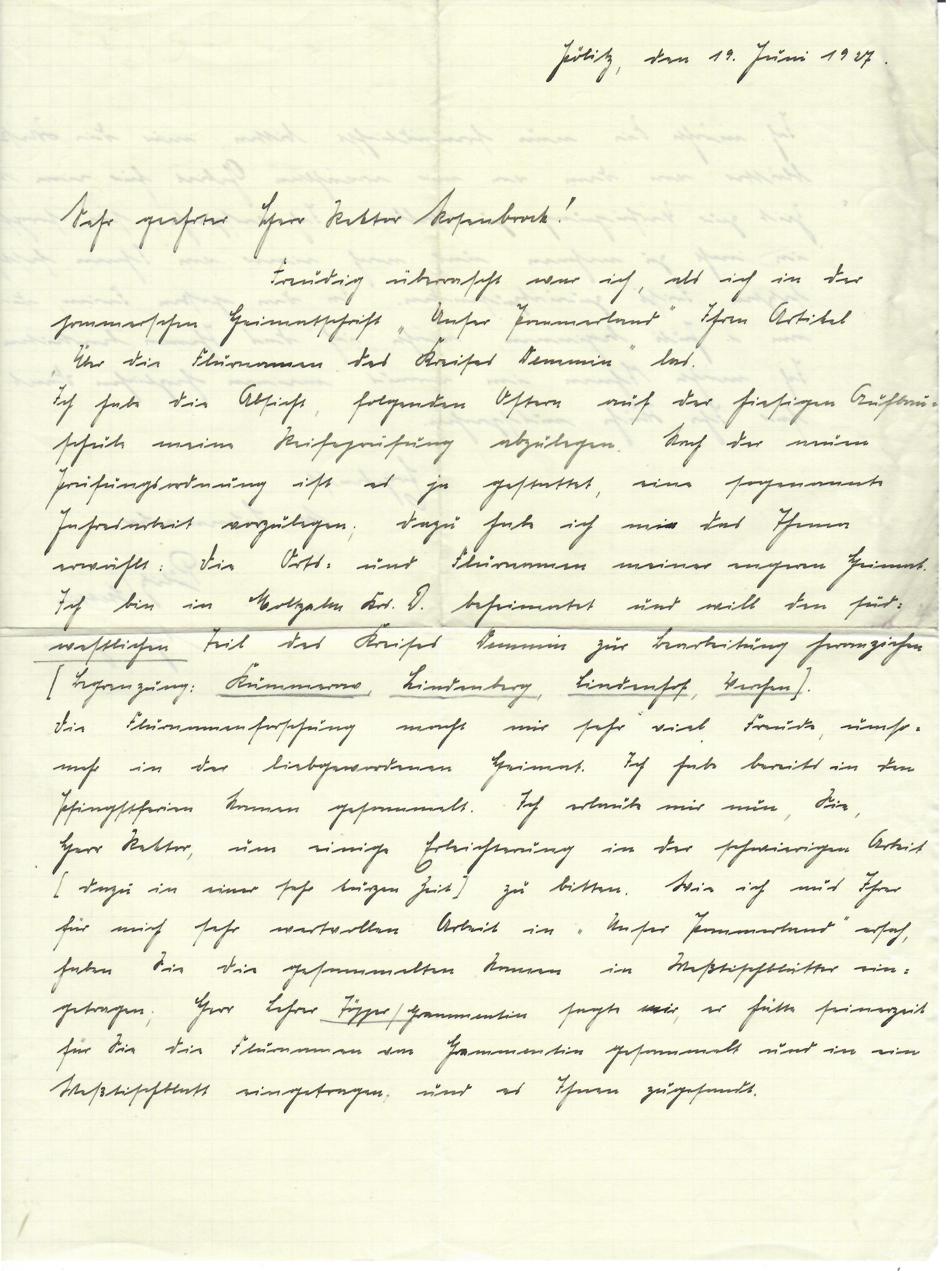 Pölitz, den 19. Juni 1927.
Sehr geehrter Herr Rektor Rosenbrock!
Freudig überrascht war ich, als ich in der
pommerschen Heimatschrift „Unser Pommerland" Ihren Artikel
„Über die Flurnamen des Kreises Demmin" las.
Ich habe die Absicht, folgenden Ostern auf der hiesigen Aufbau-
schule meine Reifeprüfung abzulegen. Nach der neuen
Prüfungsordnung ist es ja gestattet, eine sogenannte
Jahresarbeit vorzulegen; dazu habe ich mir das Thema
erwählt: Die Orts- und Flurnamen meiner engeren Heimat.
Ich bin in Moltzahn Krs. D. beheimatet und will den süd-
westlichen Teil des Kreises Demmin zur Bearbeitung heranziehen
[Begrenzung: Kummerow, Lindenberg, Lindenhof, Verchen].
Die Flurnamenforschung macht mir sehr viel Freude, umso-
mehr in der liebgewordenen Heimat. Ich habe bereits in den
Pfingstferien Namen gesammelt. Ich erlaube mir nun, Sie,
Herr Rektor, um einige Erleichterung in der schwierigen Arbeit
[dazu in einer sehr kurzen Zeit] zu bitten. Wie ich aus Ihrer
für mich sehr wertvollen Arbeit in „Unser Pommerland" ersah,
haben Sie die gesammelten Namen in Meßtischblätter ein-
getragen; Herr Lehrer Töpper/Grammentin sagte mir, er hätte seinerzeit
für Sie die Flurnamen von Grammentin gesammelt und in ein
Meßtischblatt eingetragen, und es Ihnen zugesandt.